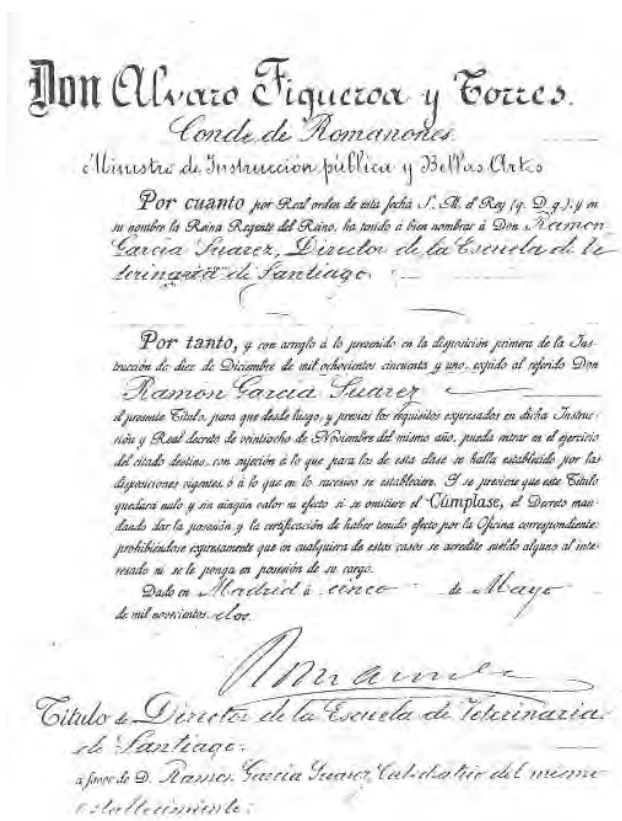 Don Alvaro Figueroa y Torres.
Conde de Romanones.
Ministro de Instrucción pública y Bellas Artes
Por cuanto por Real orden de esta fecha S. M. el Rey (q. D. g.), y en
su nombre la Reina Regente del Reino, ha tenido á bien nombrar á Don Ramon
García Suarez, Director de la Escuela de Ve-
terinaria de Santiago.
Por tanto, y con arreglo á lo prevenido en la disposición primera de la Ins-
trucción de diez de Diciembre de mil ochocientos cincuenta y uno, expido al referido Don
Ramón García Suarez
el presente Título, para que desde luego, y previos los requisitos expresados en dicha Instruc-
ción y Real decreto de veintiocho de Noviembre del mismo año, pueda entrar en el ejercicio
del citado destino, con sujeción á lo que para los de esta clase se halla establecido por las
disposiciones vigentes, ó á lo que en lo sucesivo se estableciere. Y se previene que este Título
quedará nulo y sin ningún valor ni efecto si se omitiere el Cúmplase, el Decreto man-
dando dar la posesión y la certificación de haber tenido efecto por la Oficina correspondiente:
prohibiéndose expresamente que en cualquiera de estos casos se acredite sueldo alguno al inte-
resado ni se le ponga en posesión de su cargo.
Dado en Madrid á cinco de Mayo
de mil novecientos dos.
Romanones
Título de Director de la Escuela de Veterinaria
de Santiago.
a favor de D. Ramon García Suarez, Catedrático del mismo
establecimiento.